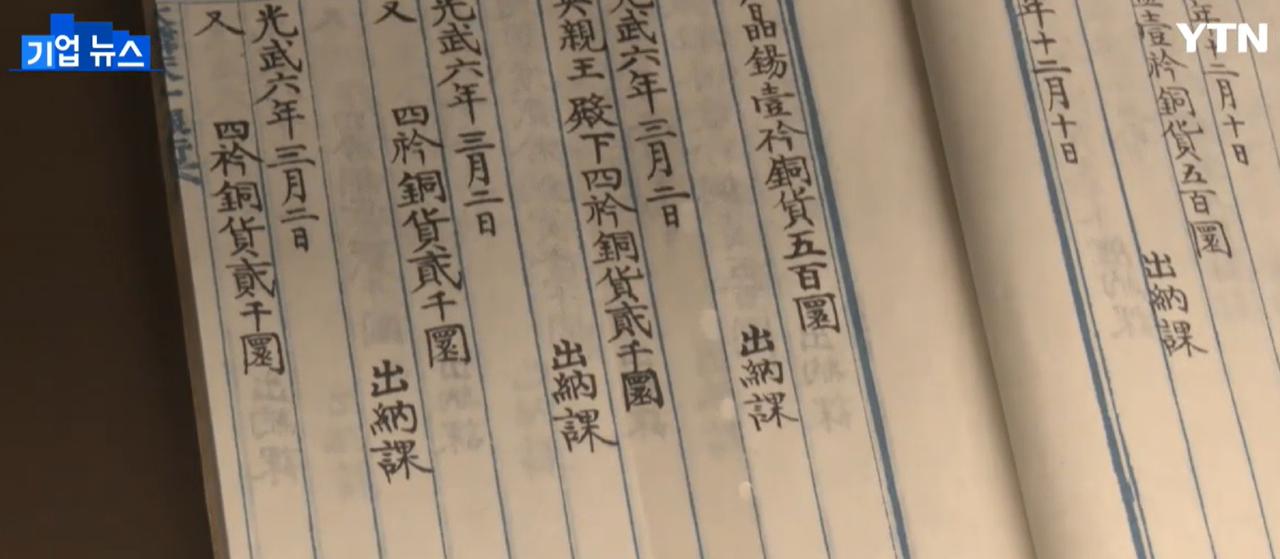 기업 뉴스
YTN
年十二月十日
壹衿銅貨五百圜
出納課
年十二月十日
晶錫壹衿銅貨五百圜
出納課
光武六年三月二日
英親王殿下四衿銅貨貳千圜
出納課
光武六年三月二日
又 四衿銅貨貳千圜
出納課
光武六年三月二日
又 四衿銅貨貳千圜